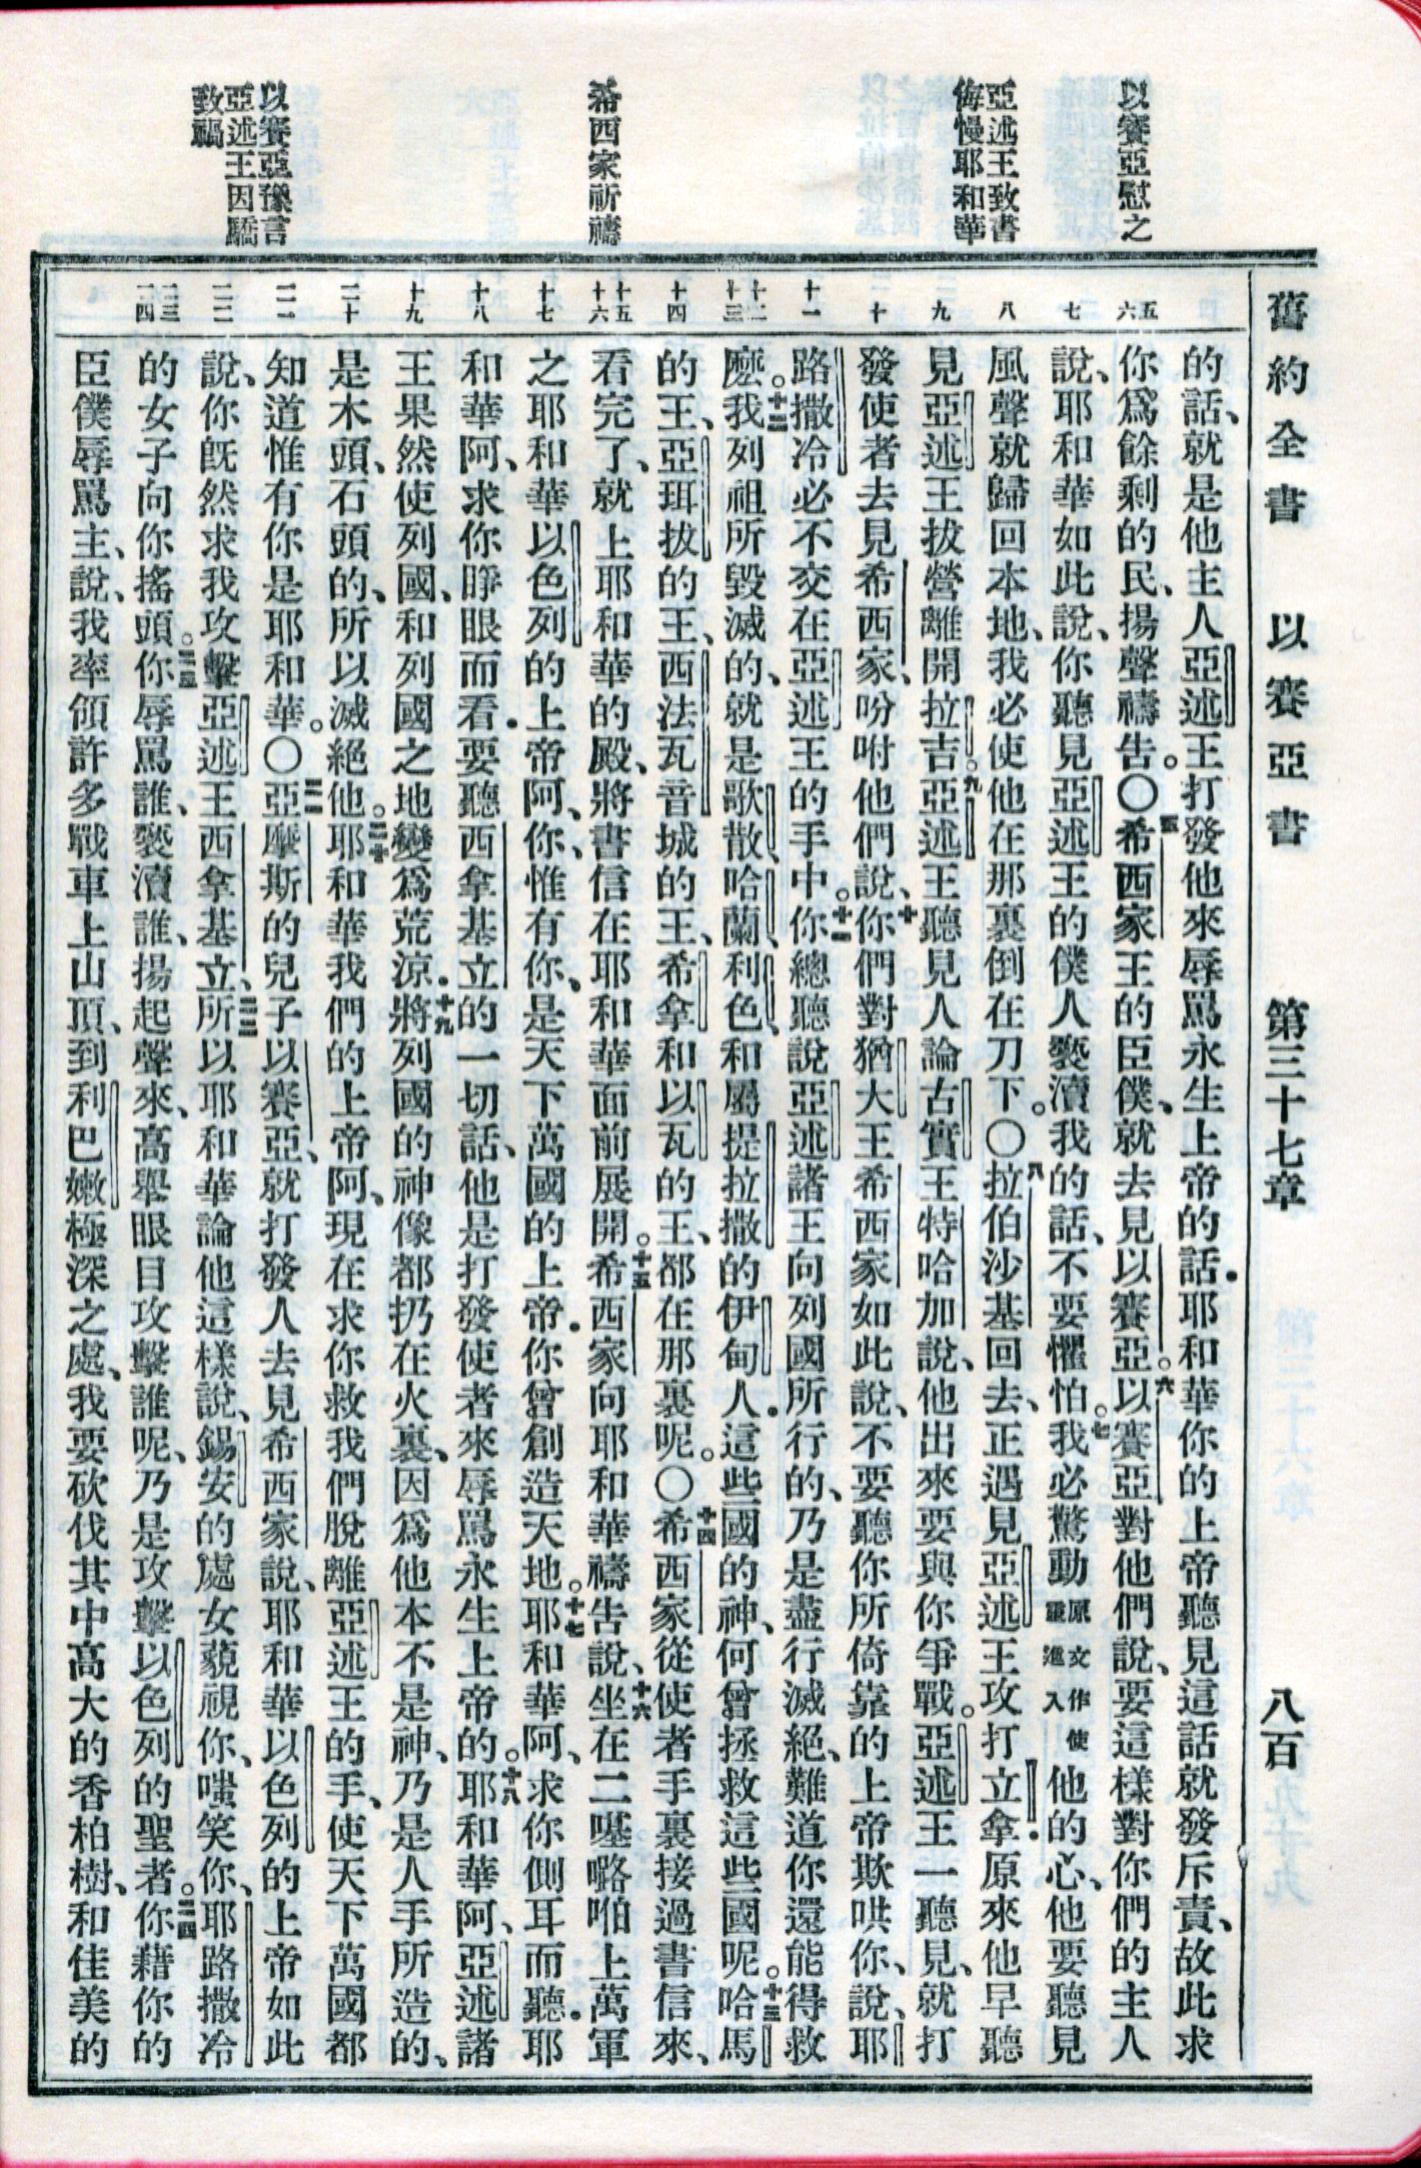 舊約全書 以賽亞書 第三十七章 八百
以賽亞慰之
亞述王致書
侮慢耶和華
希西家祈禱
以賽亞豫言
亞述王因驕
致禍
五
六
七
八
九
十
十一
十二
十三
十四
十五
十六
十七
十八
十九
二十
二一
二二
二三
二四
的話、就是他主人亞述王打發他來辱罵永生上帝的話．耶和華你的上帝聽見這話就發斥責、故此求
你爲餘剩的民、揚聲禱告。〇五希西家王的臣僕、就去見以賽亞。六以賽亞對他們說、要這樣對你們的主人
說、耶和華如此說、你聽見亞述王的僕人褻瀆我的話、不要懼怕。七我必驚動原文作使靈進入他的心、他要聽見
風聲就歸回本地、我必使他在那裏倒在刀下。〇八拉伯沙基回去、正遇見亞述王攻打立拿．原來他早聽
見亞述王拔營離開拉吉。九亞述王聽見人論古實王特哈加說、他出來要與你爭戰。亞述王一聽見、就打
發使者去見希西家、吩咐他們說、十你們對猶大王希西家如此說、不要聽你所倚靠的上帝欺哄你、說、耶
路撒冷必不交在亞述王的手中。十一你總聽說亞述諸王向列國所行的、乃是盡行滅絕、難道你還能得救
麼。十二我列祖所毀滅的、就是歌散、哈蘭、利色、和屬提拉撒的伊甸人．這些國的神、何曾拯救這些國呢。十三哈馬
的王、亞珥拔的王、西法瓦音城的王、希拿和以瓦的王、都在那裏呢。〇十四希西家從使者手裏接過書信來、
看完了、就上耶和華的殿、將書信在耶和華面前展開。十五希西家向耶和華禱告說、十六坐在二𠼻嚕啪上萬軍
之耶和華以色列的上帝阿、你、惟有你、是天下萬國的上帝．你曾創造天地。十七耶和華阿、求你側耳而聽．耶
和華阿、求你睜眼而看．要聽西拿基立的一切話、他是打發使者來辱罵永生上帝的。十八耶和華阿、亞述諸
王果然使列國、和列國之地變爲荒涼．十九將列國的神像都扔在火裏、因爲他本不是神、乃是人手所造的、
是木頭、石頭的、所以滅絕他。二十耶和華我們的上帝阿、現在求你救我們脫離亞述王的手、使天下萬國都
知道惟有你是耶和華。〇二一亞摩斯的兒子以賽亞、就打發人去見希西家說、耶和華以色列的上帝如此
說、你旣然求我攻擊亞述王西拿基立、二二所以耶和華論他這樣說、錫安的處女藐視你、嗤笑你、耶路撒冷
的女子向你搖頭。二三你辱罵誰、褻瀆誰、揚起聲來、高舉眼目攻擊誰呢、乃是攻擊以色列的聖者。二四你藉你的
臣僕辱罵主、說、我率領許多戰車上山頂、到利巴嫩極深之處、我要砍伐其中高大的香柏樹、和佳美的